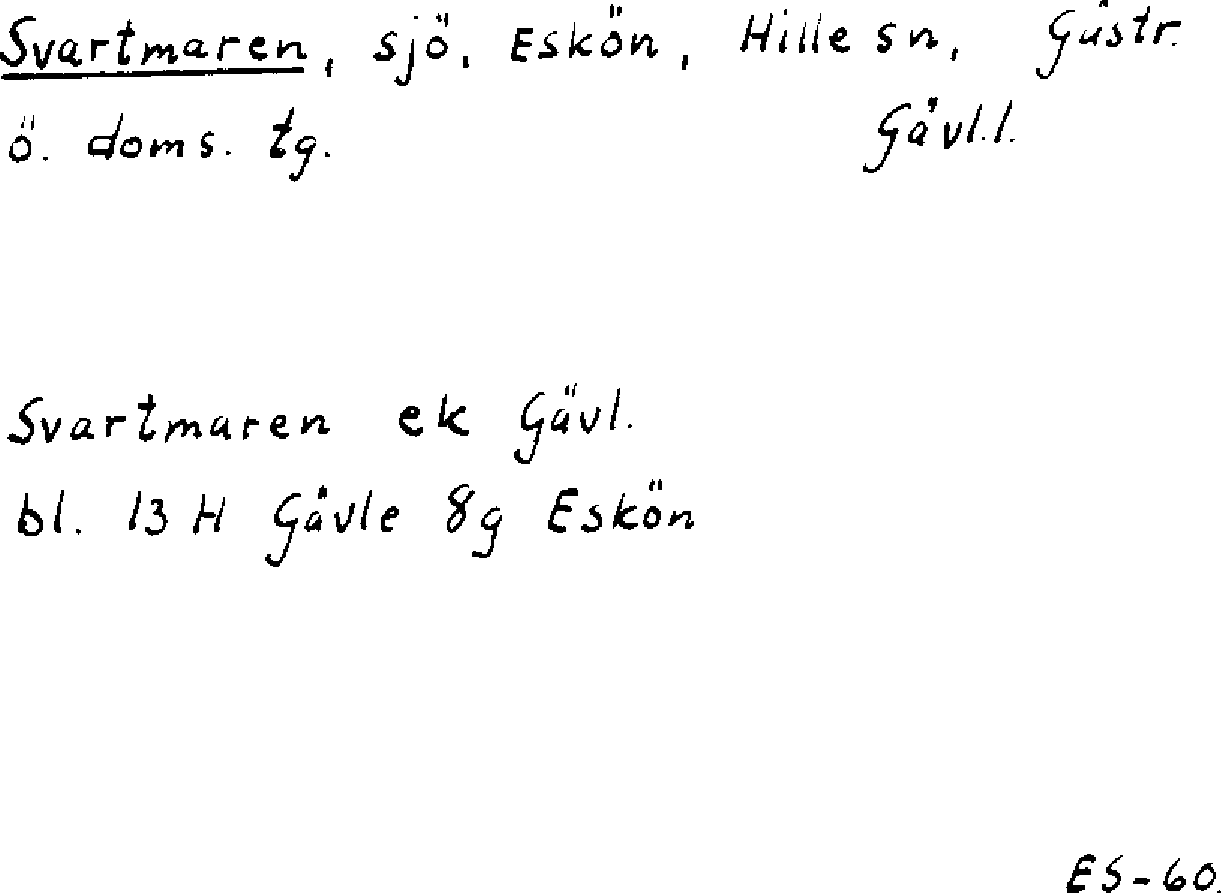 Svartmaren, sjö, Eskön, Hille sn, Gästr.
ö. doms. tg. Gävl.l.
Svartmaren ek Gävl.
bl. 13 H Gävle 8g Eskön
ES-60.